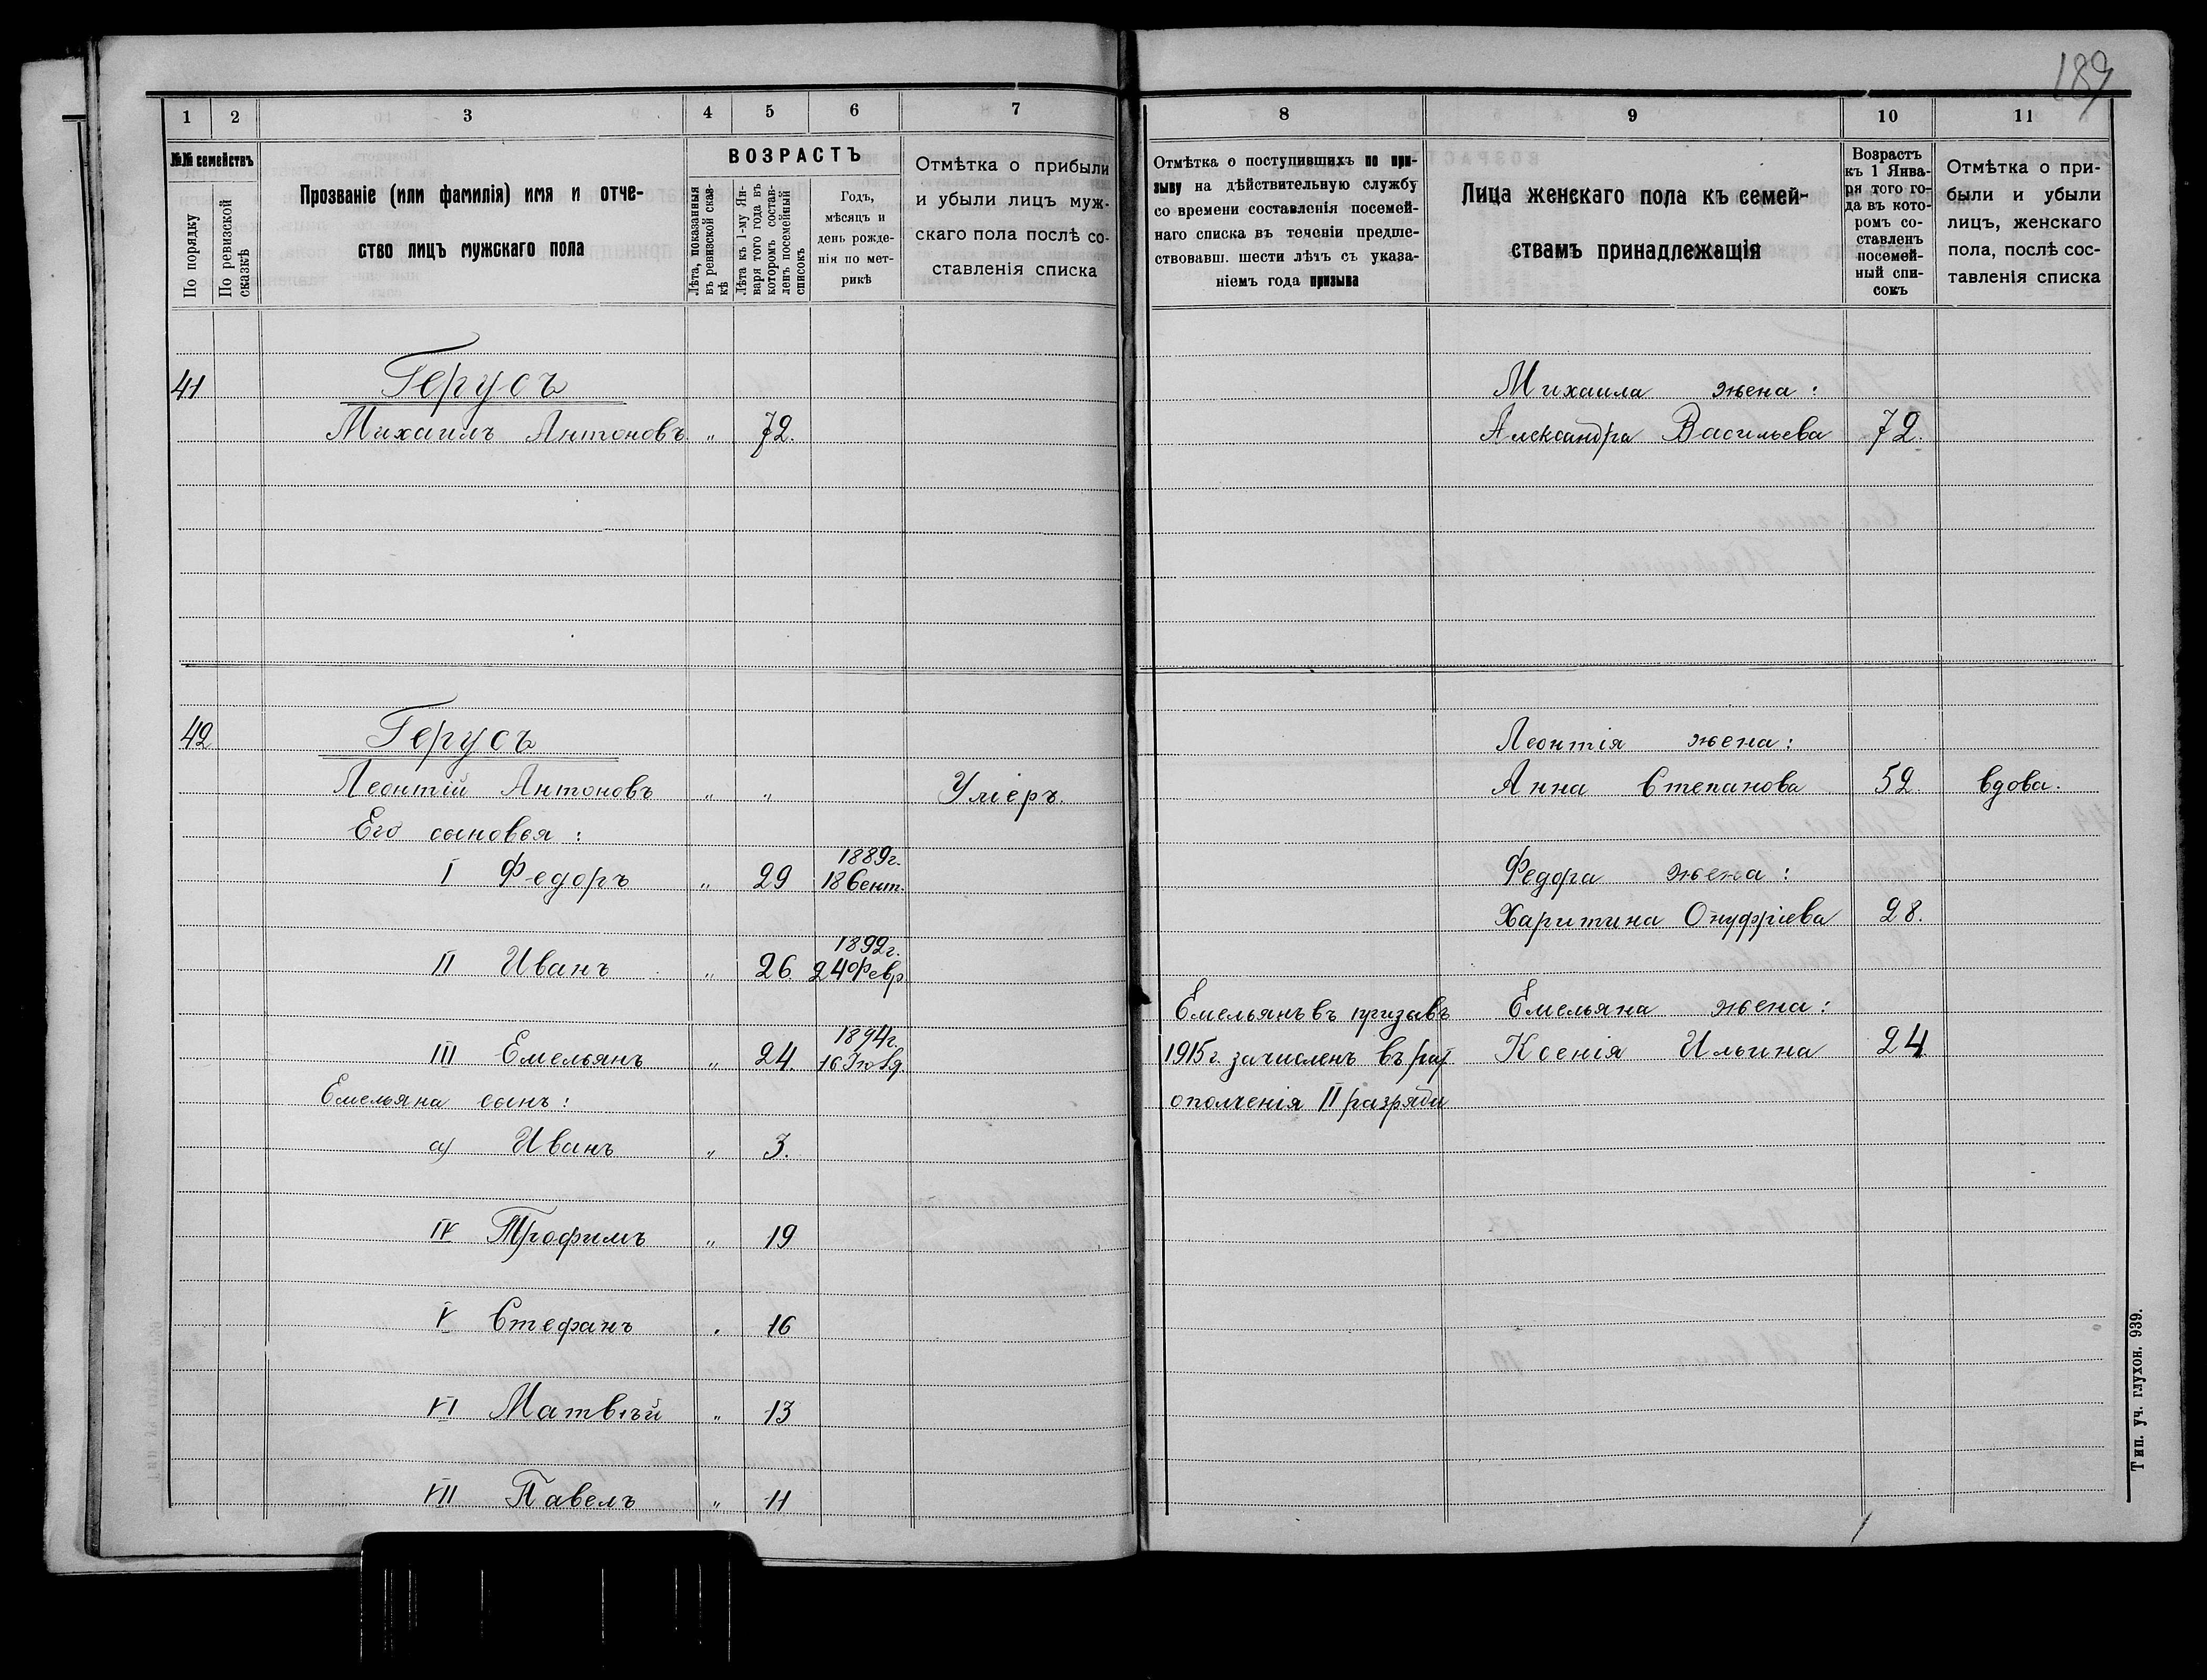 189
1 2 3 4 5 6 7
№№ семействъ
По порядку
По ревизской сказкѣ
Прозваніе (или фамилія) имя и отче-
ство лицъ мужскаго пола
ВОЗРАСТЪ
Лѣта, показанныя
въ ревизской сказ-
кѣ
Лѣта къ 1-му Ян-
варя того года въ
которомъ состав-
ленъ посемейный
списокъ
Годъ,
мѣсяцъ и
день рожде-
нія по мет-
рикѣ
Отмѣтка о прибыли
и убыли лицъ муж-
скаго пола послѣ со-
ставленія списка
8 9 10 11
Отмѣтка о поступившихъ по при-
зыву на дѣйствительную службу
со времени составленія посемей-
наго списка въ теченіи предше-
ствовавш. шести лѣтъ съ указа-
ніемъ года призыва
Лица женскаго пола къ семей-
ствамъ принадлежащія
Возрастъ
къ 1 Янва-
ря того го-
да въ кото-
ромъ со-
ставленъ
посемей-
ный спи-
сокъ
Отмѣтка о при-
были и убыли
лицъ, женскаго
пола, послѣ сос-
тавленія списка
41 Герусъ Михаила жена:
Михаилъ Антоновъ " 72. Александра Васильева 72.
42 Герусъ Леонтія жена:
Леонтій Антоновъ " " Умеръ. Анна Степанова 52. вдова.
Его сыновья:
1889г.
I Федоръ " 29 18 Сент. Федора жена:
Харитина Онуфріева 28.
1892г.
II Иванъ " 26 24 Февр.
Емельянъ въ призывъ Емельяна жена:
1894г.
III Емельянъ " 24. 16 1915г. зачисленъ въ рат. Ксенія Ильина 24
Емельяна сынъ: ополченія II разряда
а) Иванъ " 3.
IV Трофимъ " 19
V Стефанъ " 16
VI Матвѣй " 13
VII Павелъ " 11
Тип. уч. глухон. 939.